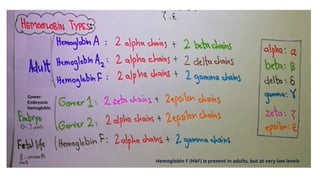 ζ, ε
HEMOGLOBIN TYPES:
Adult
Hemoglobin A: 2 alpha chains + 2 beta chains
Hemoglobin A₂: 2 alpha chains + 2 delta chains
Hemoglobin F: 2 alpha chains + 2 gamma chains
Gower:
Embryonic
hemoglobin
Embryo
Gower 1: 2 zeta chains + 2 epsilon chains
Gower 2: 2 alpha chains + 2 epsilon chains
Fetal life
Hemoglobin F: 2 alpha chains + 2 gamma chains
Hemoglobin F (HbF) is present in adults, but at very low levels
alpha: α
beta: β
delta: δ
gamma: γ
zeta: ζ
epsilon: ε